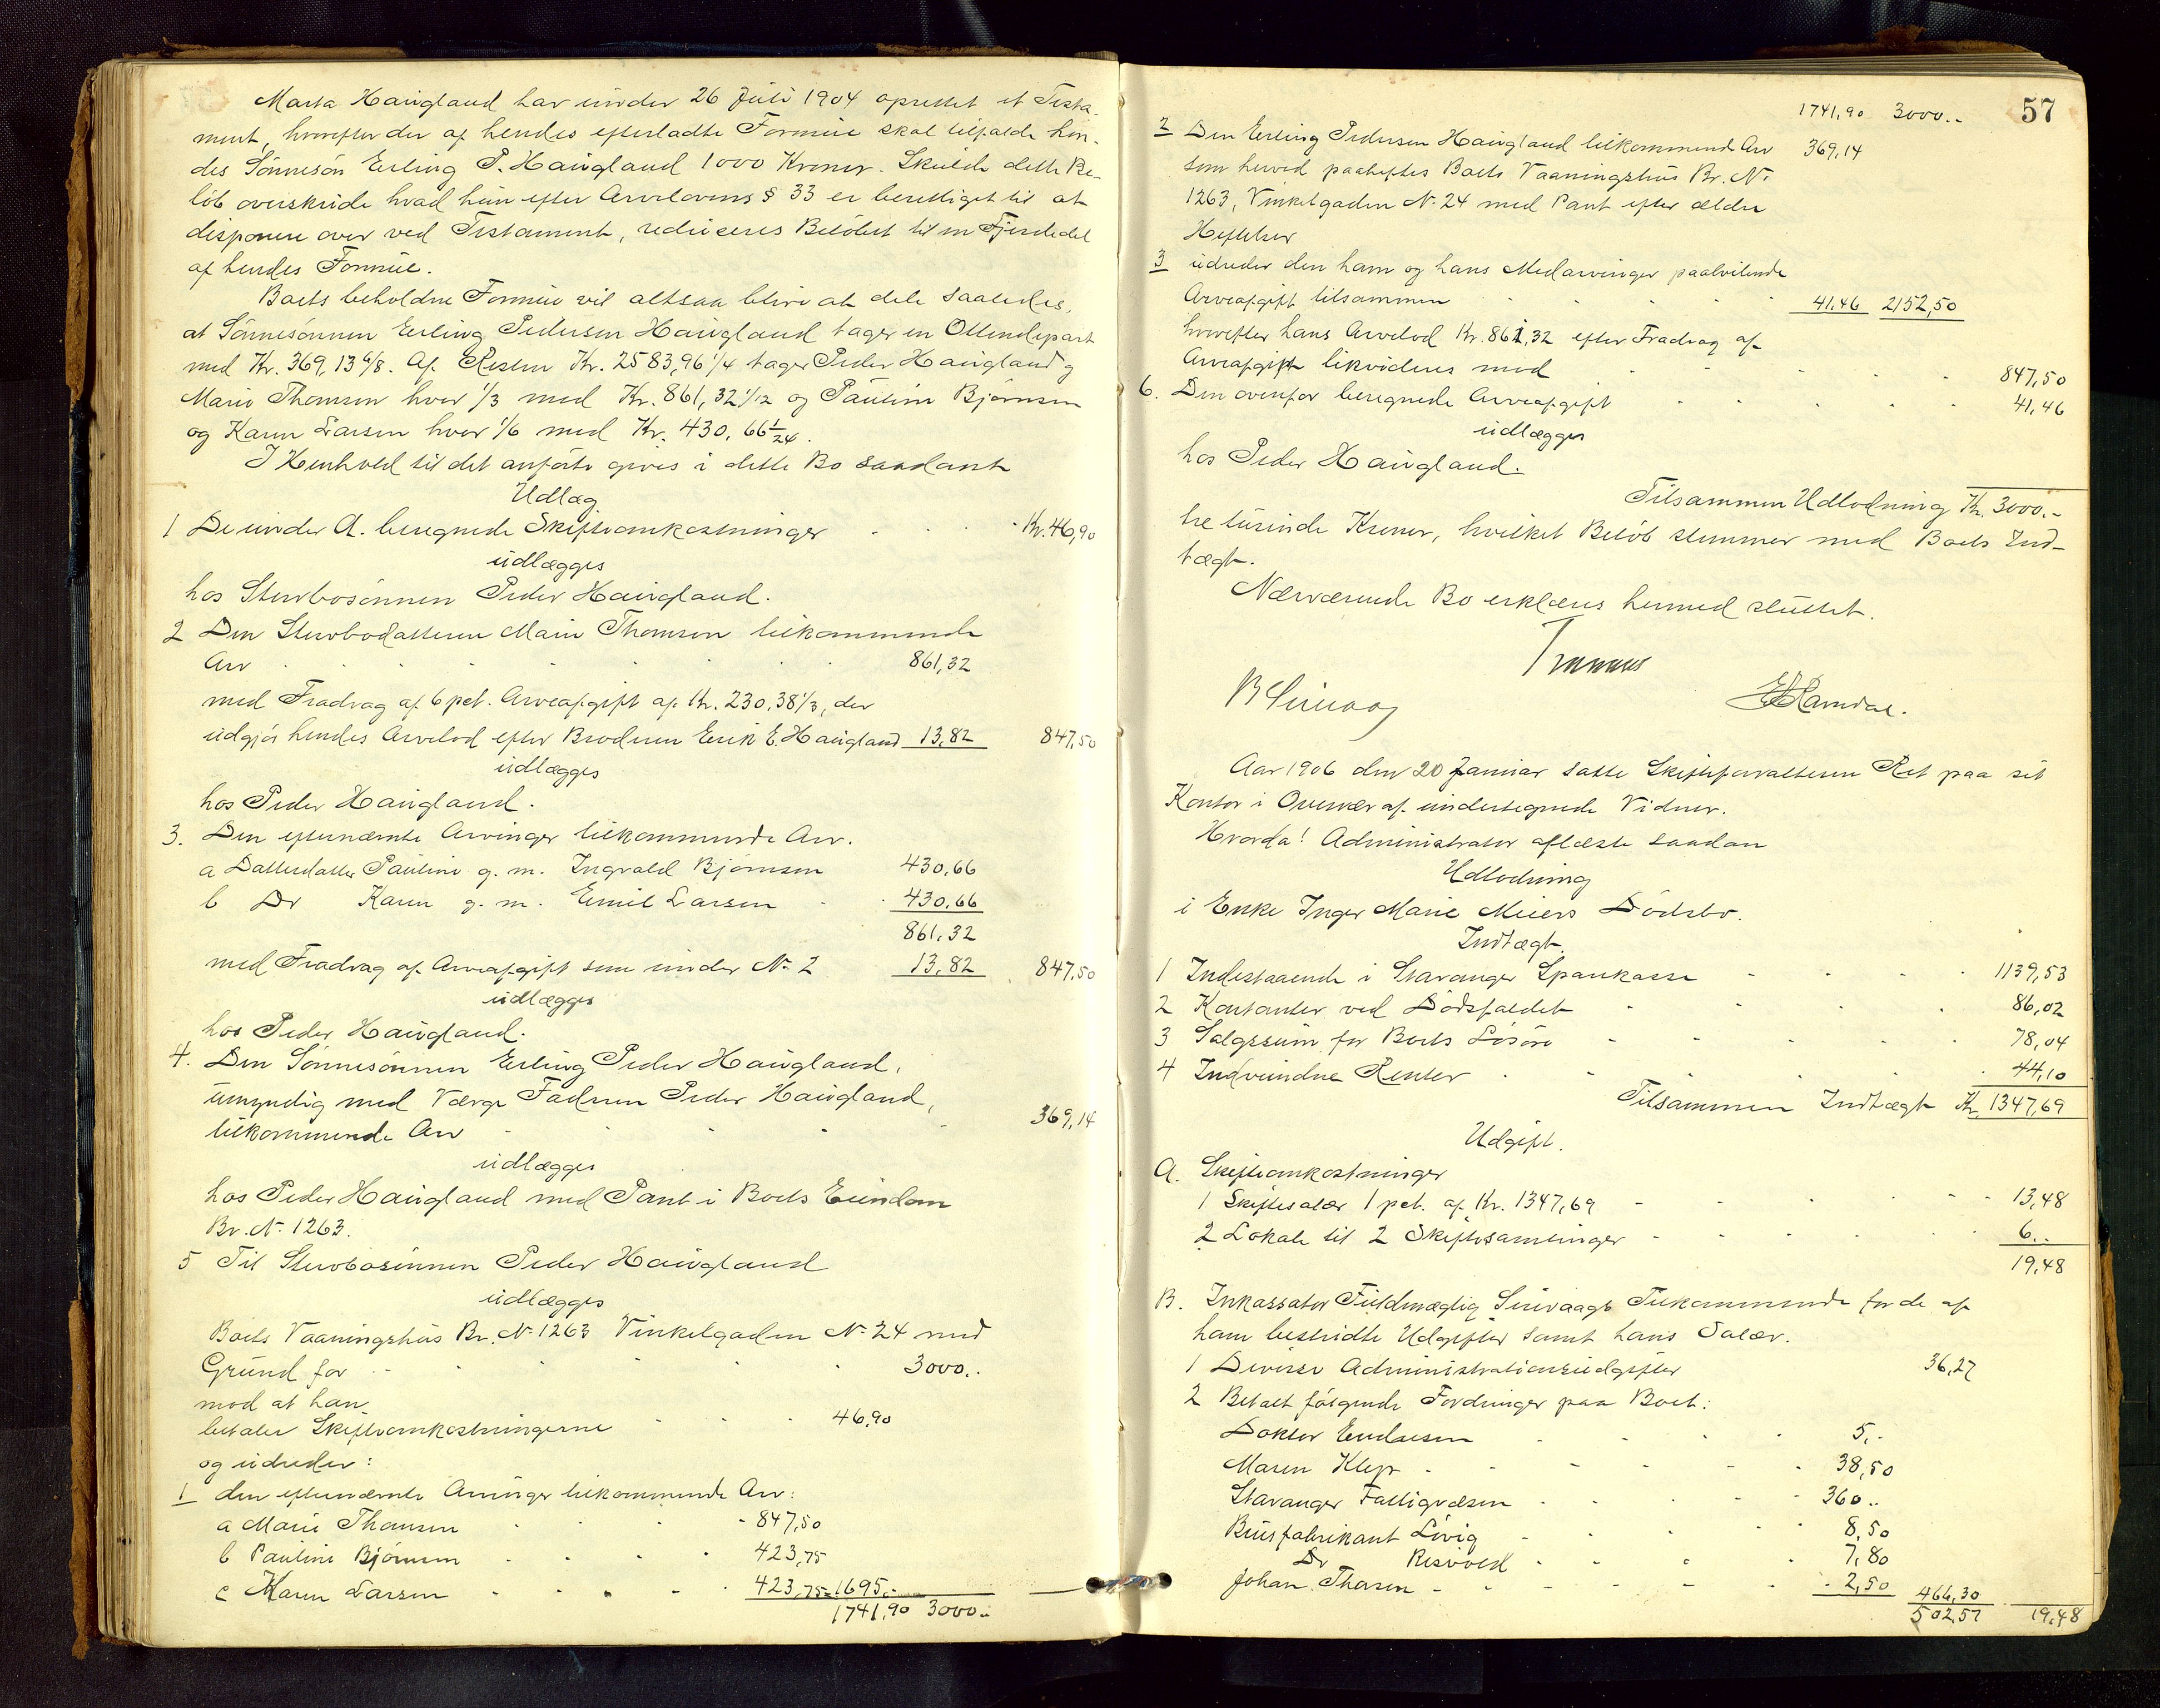 Marta Haugland har under 26 Juli 1904 oprettet et Testa-
ment, hvorefter der af hendes efterladte Formue skal tilfalde hen-
des Sønnesøn Erling P. Haugland 1000 Kroner. Skulde dette Be-
løb overskride hvad hun efter Arvelovens § 33 er berettiget til at
disponere over ved Testament, reduceres Beløbet til en Fjerdedel
af hendes Formue.
Boets beholdne Formue vil altsaa blive at dele saaledes,
at Sønnesønnen Erling Pedersen Haugland tager en Ottendepart
med Kr. 369,13 6/8. Af Resten Kr. 2583,96 1/4 tager Peder Haugland og
Marie Thomsen hver 1/3 med Kr. 861,32 1/12 og Pauline Bjørnsen
og Karen Larsen hver 1/6 med Kr. 430,66 1/24.
I Henhold til det anførte gives i dette Bo saadant
Udlæg
1 De under A. beregnede Skifteomkostninger Kr. 46,90
udlægges
hos Stervbosønnen Peder Haugland.
2 Den Stervbodatteren Marie Thomsen tilkommende
Arv 861,32
med Fradrag af 6 pct. Arveafgift af Kr. 230,38 1/3, der
udgjør hendes Arvelod efter Broderen Erik E. Haugland 13,82 847,50
udlægges
hos Peder Haugland.
3. Den efternævnte Arvinger tilkommende Arv.
a Datterdatter Pauline g. m. Ingvald Bjørnsen 430,66
b Do Karen g. m. Emil Larsen 430,66
861,32
med Fradrag af Arveafgift som under No 2 13,82 847,50
udlægges
hos Peder Haugland.
4. Den Sønnesønnen Erling Peder Haugland,
umyndig med Værge Faderen Peder Haugland,
tilkommende Arv 369,14
udlægges
hos Peder Haugland med Pant i Boets Eiendom
Br. No 1263.
5 Til Stervbosønnen Peder Haugland
udlægges
Boets Vaaningshus Br. No 1263 Vinkelgaden No 24 med
Grund for 3000..
mod at han
betaler Skifteomkostningerne 46,90
og udreder:
1 den efternævnte Arvinger tilkommende Arv:
a Marie Thomsen 847,50
b Pauline Bjørnsen 423,75
c Karen Larsen 423,75=1695.-
1741,90 3000..
57
1741,90 3000..
2 Den Erling Pedersen Haugland tilkommende Arv 369,14
som herved paaheftes Boets Vaaningshus Br. No
1263, Vinkelgaden No 24 med Pant efter ældre
Heftelser
3 udreder den ham og hans Medarvinger paahvilende
Arveafgift tilsammen 41,46 2152,50
hvorefter hans Arvelod Kr. 861,32 efter Fradrag af
Arveafgift likvideres med 847,50
6. Den ovenfor beregnede Arveafgift 41,46
udlægges
hos Peder Haugland.
Tilsammen Udlodning Kr. 3000.-
tre tusinde Kroner, hvilket Beløb stemmer med Boets Ind-
tægt.
Nærværende Bo erklæres hermed sluttet.
Aar 1906 den 20 Januar satte Skifteforvalteren Ret paa sit
Kontor i Overvær af undertegnede Vidner.
Hvorda! Administrator aflæste saadan
Udlodning
i Enke Inger Marie Meiers Dødsbo.
Indtægt.
1 Indestaaende i Stavanger Sparekasse 1139,53
2 Kontanter ved Dødsfaldet 86,02
3 Salgssum for Boets Løsøre 78,04
4 Indvundne Renter 44,10
Tilsammen Indtægt Kr. 1347,69
Udgift.
A. Skifteomkostninger
1 Skiftesalær 1 pct. af Kr. 1347,69 13,48
2 Lokale til 2 Skiftesamlinger 6..
19,48
B. Inkassator Fuldmægtig Sirevaags Tilkommende for de af
ham bestridte Udgifter samt hans Salær.
1 Diverse Administrationsudgifter 36,27
2 Betalt følgende Fordringer paa Boet:
Doktor Endresen 5.-
Maren Klep 38,50
Stavanger Fattigvæsen 360..
Brusfabrikant Løvig 8,50
Do Risvold 7,80
Johan Thorsen 2,50 466,30
502,57 19,48